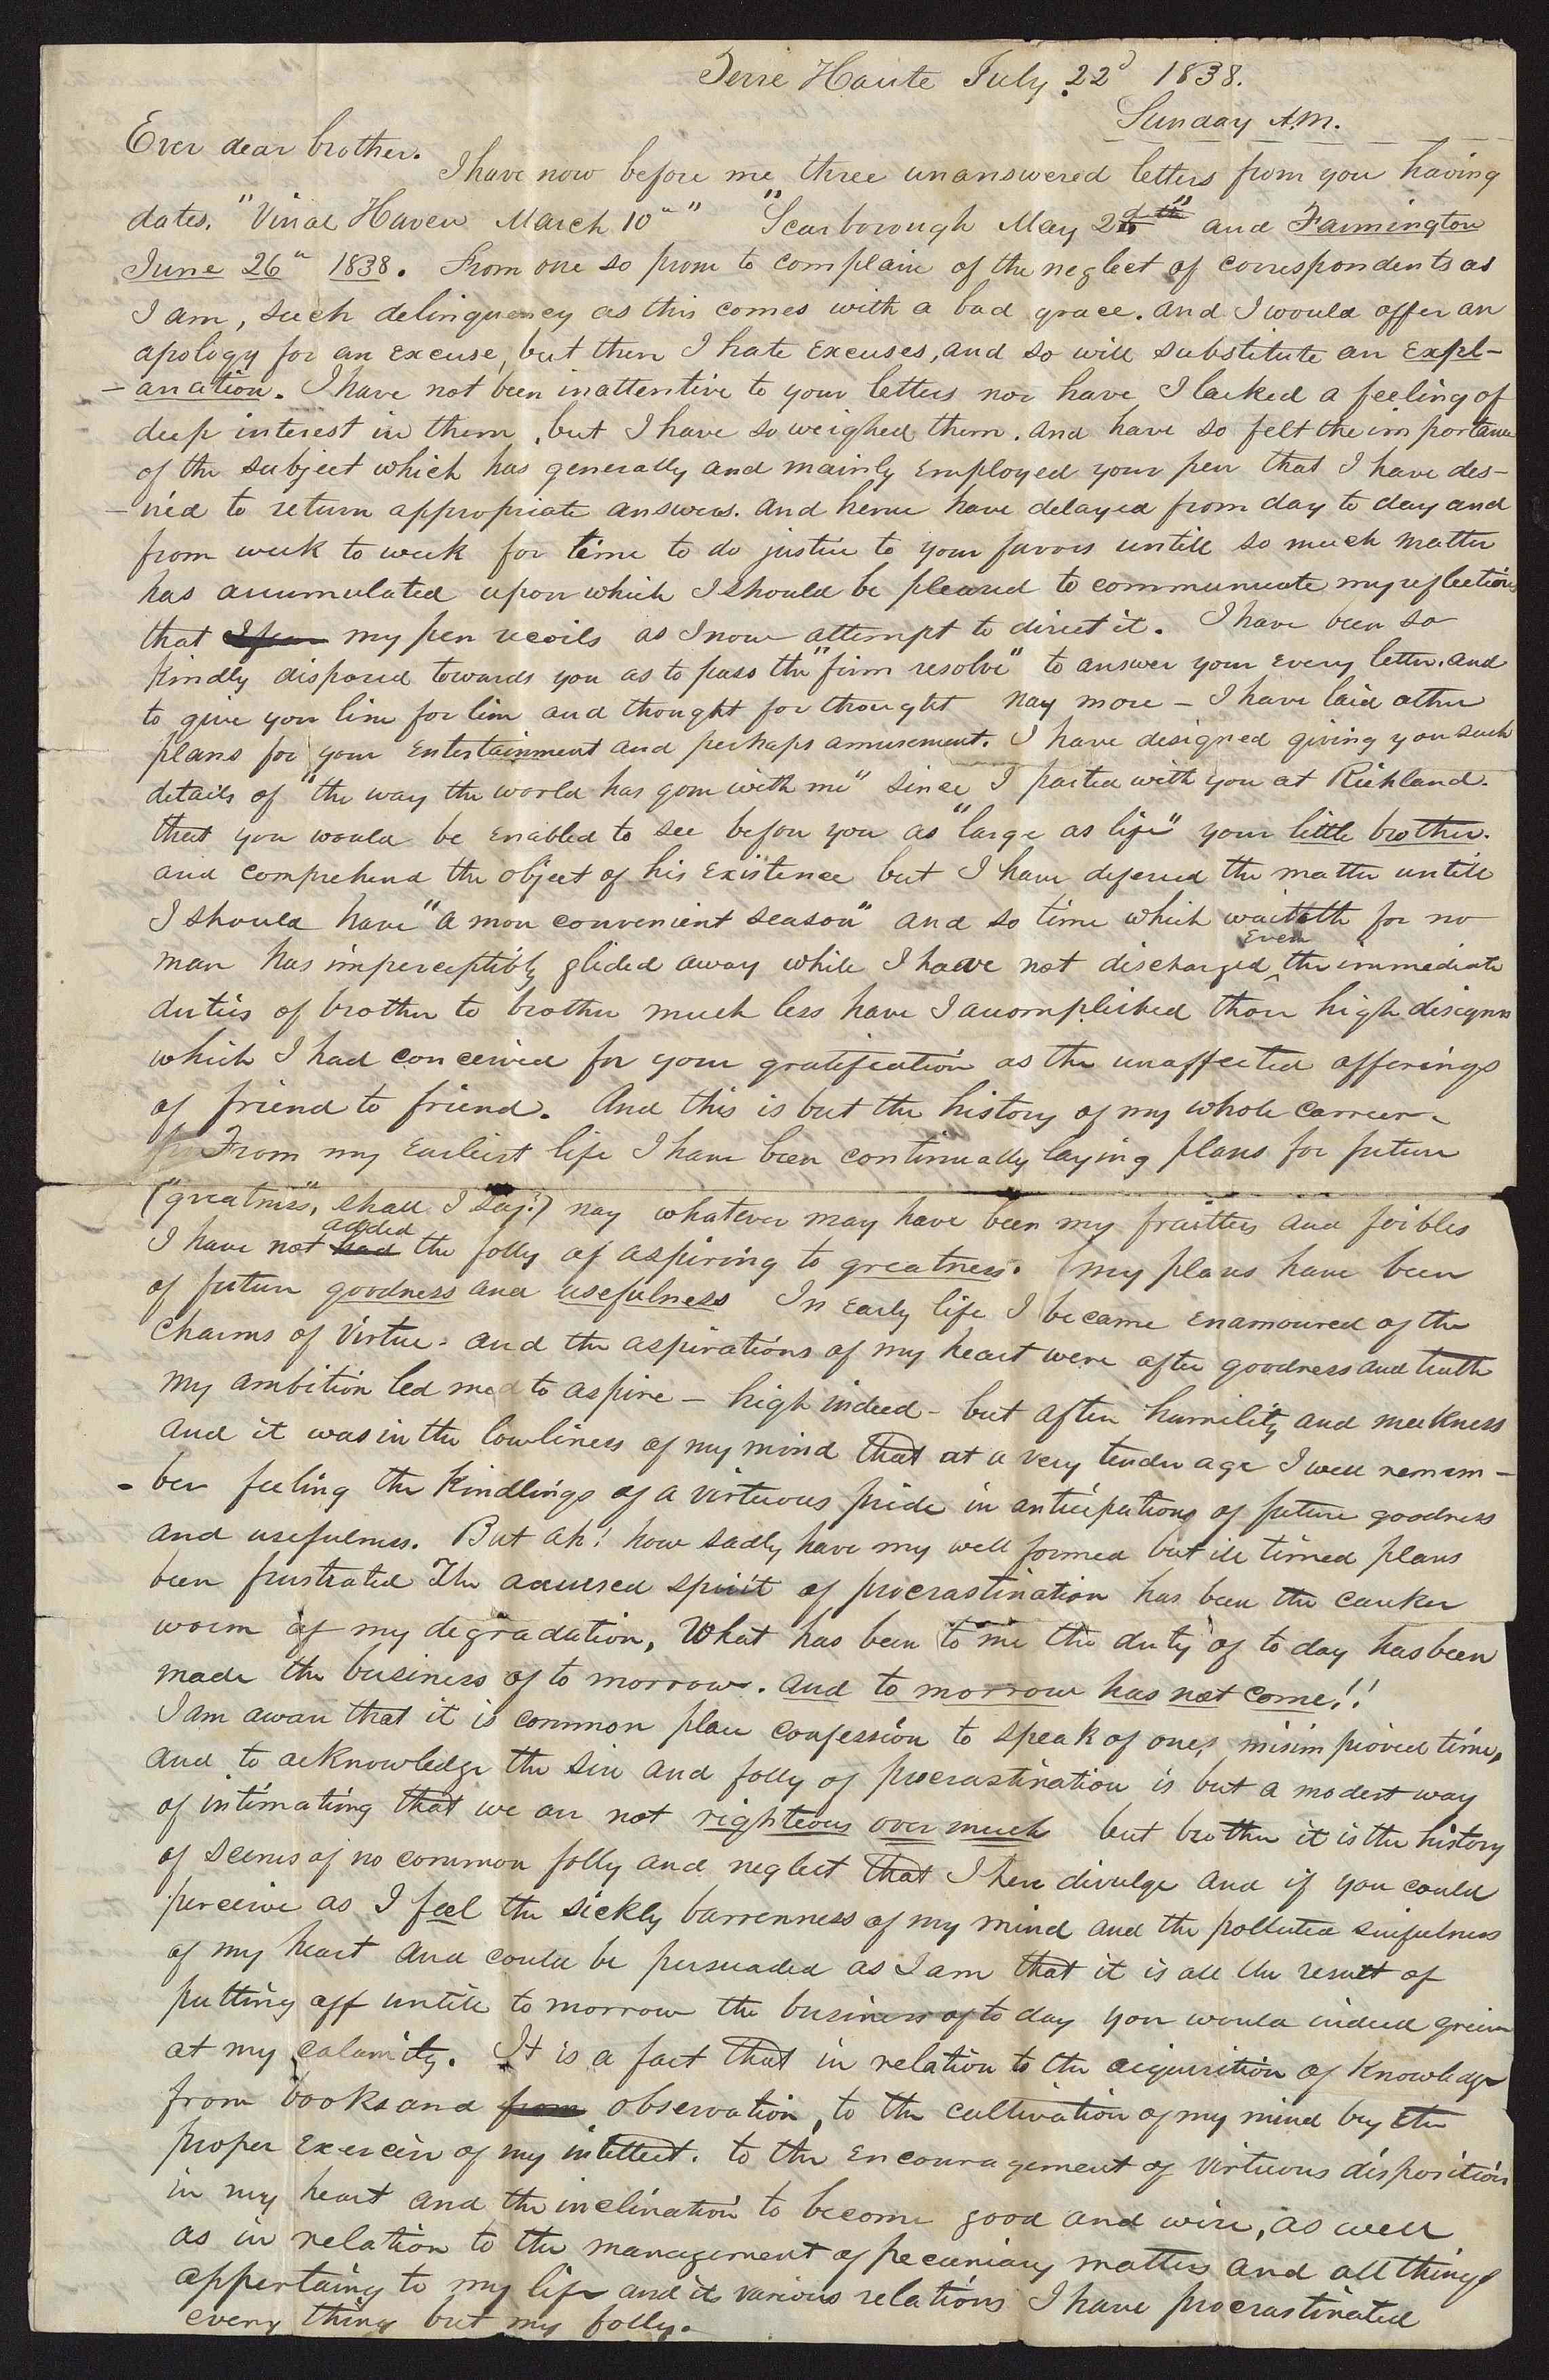 Terre Haute July 22d 1838.
Sunday A.M.
Ever dear brother.
I have now before me three unanswered letters from you having
dates. "Vinal Haven March 10th" "Scarborough May 2d" and Farmington
June 26th 1838. From one so prone to complain of the neglect of correspondents as
I am, such delinquency as this comes with a bad grace. and I would offer an
apology for an excuse, but then I hate excuses, and so will substitute an expl-
-anation. I have not been inattentive to your letters nor have I lacked a feeling of
deep interest in them, but I have so weighed them. and have so felt the importance
of the subject which has generally and mainly employed your pen that I have des-
-ired to return appropriate answers. and hence have delayed from day to day and
from week to week for time to do justice to your favors untill so much matter
has accumulated upon which I should be pleased to communicate my reflections
that I fear my pen recoils as I now attempt to direct it. I have been so
kindly disposed towards you as to pass the "firm resolve" to answer your every letter. and
to give you line for line and thought for thought nay more - I have laid other
plans for your entertainment and perhaps amusement. I have designed giving you such
details of "the way the world has gone with me" since I parted with you at Richland.
that you would be enabled to see before you as "large as life" your little brother.
and comprehend the object of his existence but I have defered the matter untill
I should have "a more convenient season" and so time which waiteth for no
man has imperceptibly glided away while I have not discharged even the immediate
duties of brother to brother much less have I accomplished those high designs
which I had conceived for your gratification as the unaffected offerings
of friend to friend. And this is but the history of my whole carreer.
From my earliest life I have been continually laying plans for future
("greatness", shall I say?) nay whatever may have been my frailties and foibles
I have not had added the folly of aspiring to greatness. My plans have been
of future goodness and usefulness In early life I became enamoured of the
charms of virtue. and the aspirations of my heart were after goodness and truth
My ambition led me to aspire - high indeed - but after humility and meekness
and it was in the lowliness of my mind that at a very tender age I well remem-
-ber feeling the kindlings of a virtuous pride in anticipations of future goodness
and usefulness. But ah! how sadly have my well formed but ill timed plans
been frustrated The accursed spirit of procrastination has been the canker
worm of my degradation, What has been to me the duty of to day has been
made the business of to morrow. and to morrow has not come!!
I am aware that it is common place confession to speak of ones misimproved time,
and to acknowledge the sin and folly of procrastination is but a modest way
of intimating that we are not righteous over much but brother it is the history
of scenes of no common folly and neglect that I here divulge and if you could
perceive as I feel the sickly barrenness of my mind and the polluted sinfulness
of my heart and could be persuaded as I am that it is all the result of
putting off untill to morrow the business of to day you would indeed grieve
at my calamity. It is a fact that in relation to the acquisition of knowledge
from books and from observation, to the cultivation of my mind by the
proper exercise of my intellect. to the encouragement of virtuous disposition
in my heart and the inclination to become good and wise, as well
as in relation to the management of pecuniary matters and all things
appertaing to my life and its various relations I have procrastinated
every thing but my folly.